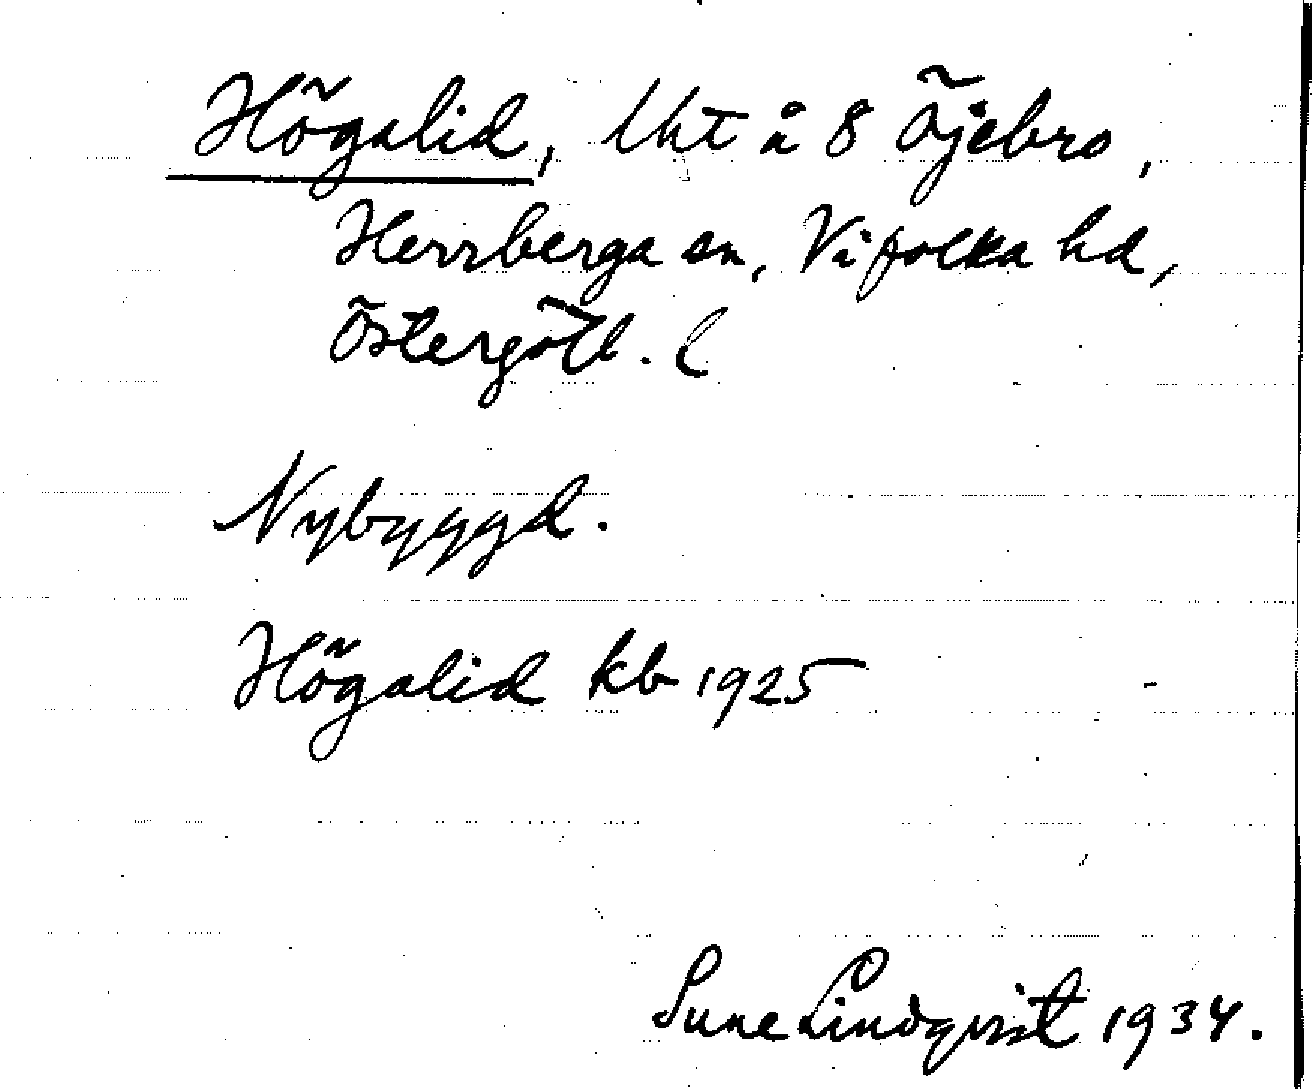 Högalid, Uht å 8 Öjebro,
Herrberga sn, Vifolka hd,
Östergötl. l
Nybyggd.
Högalid kb 1925
Sune Lindqvist 1934.